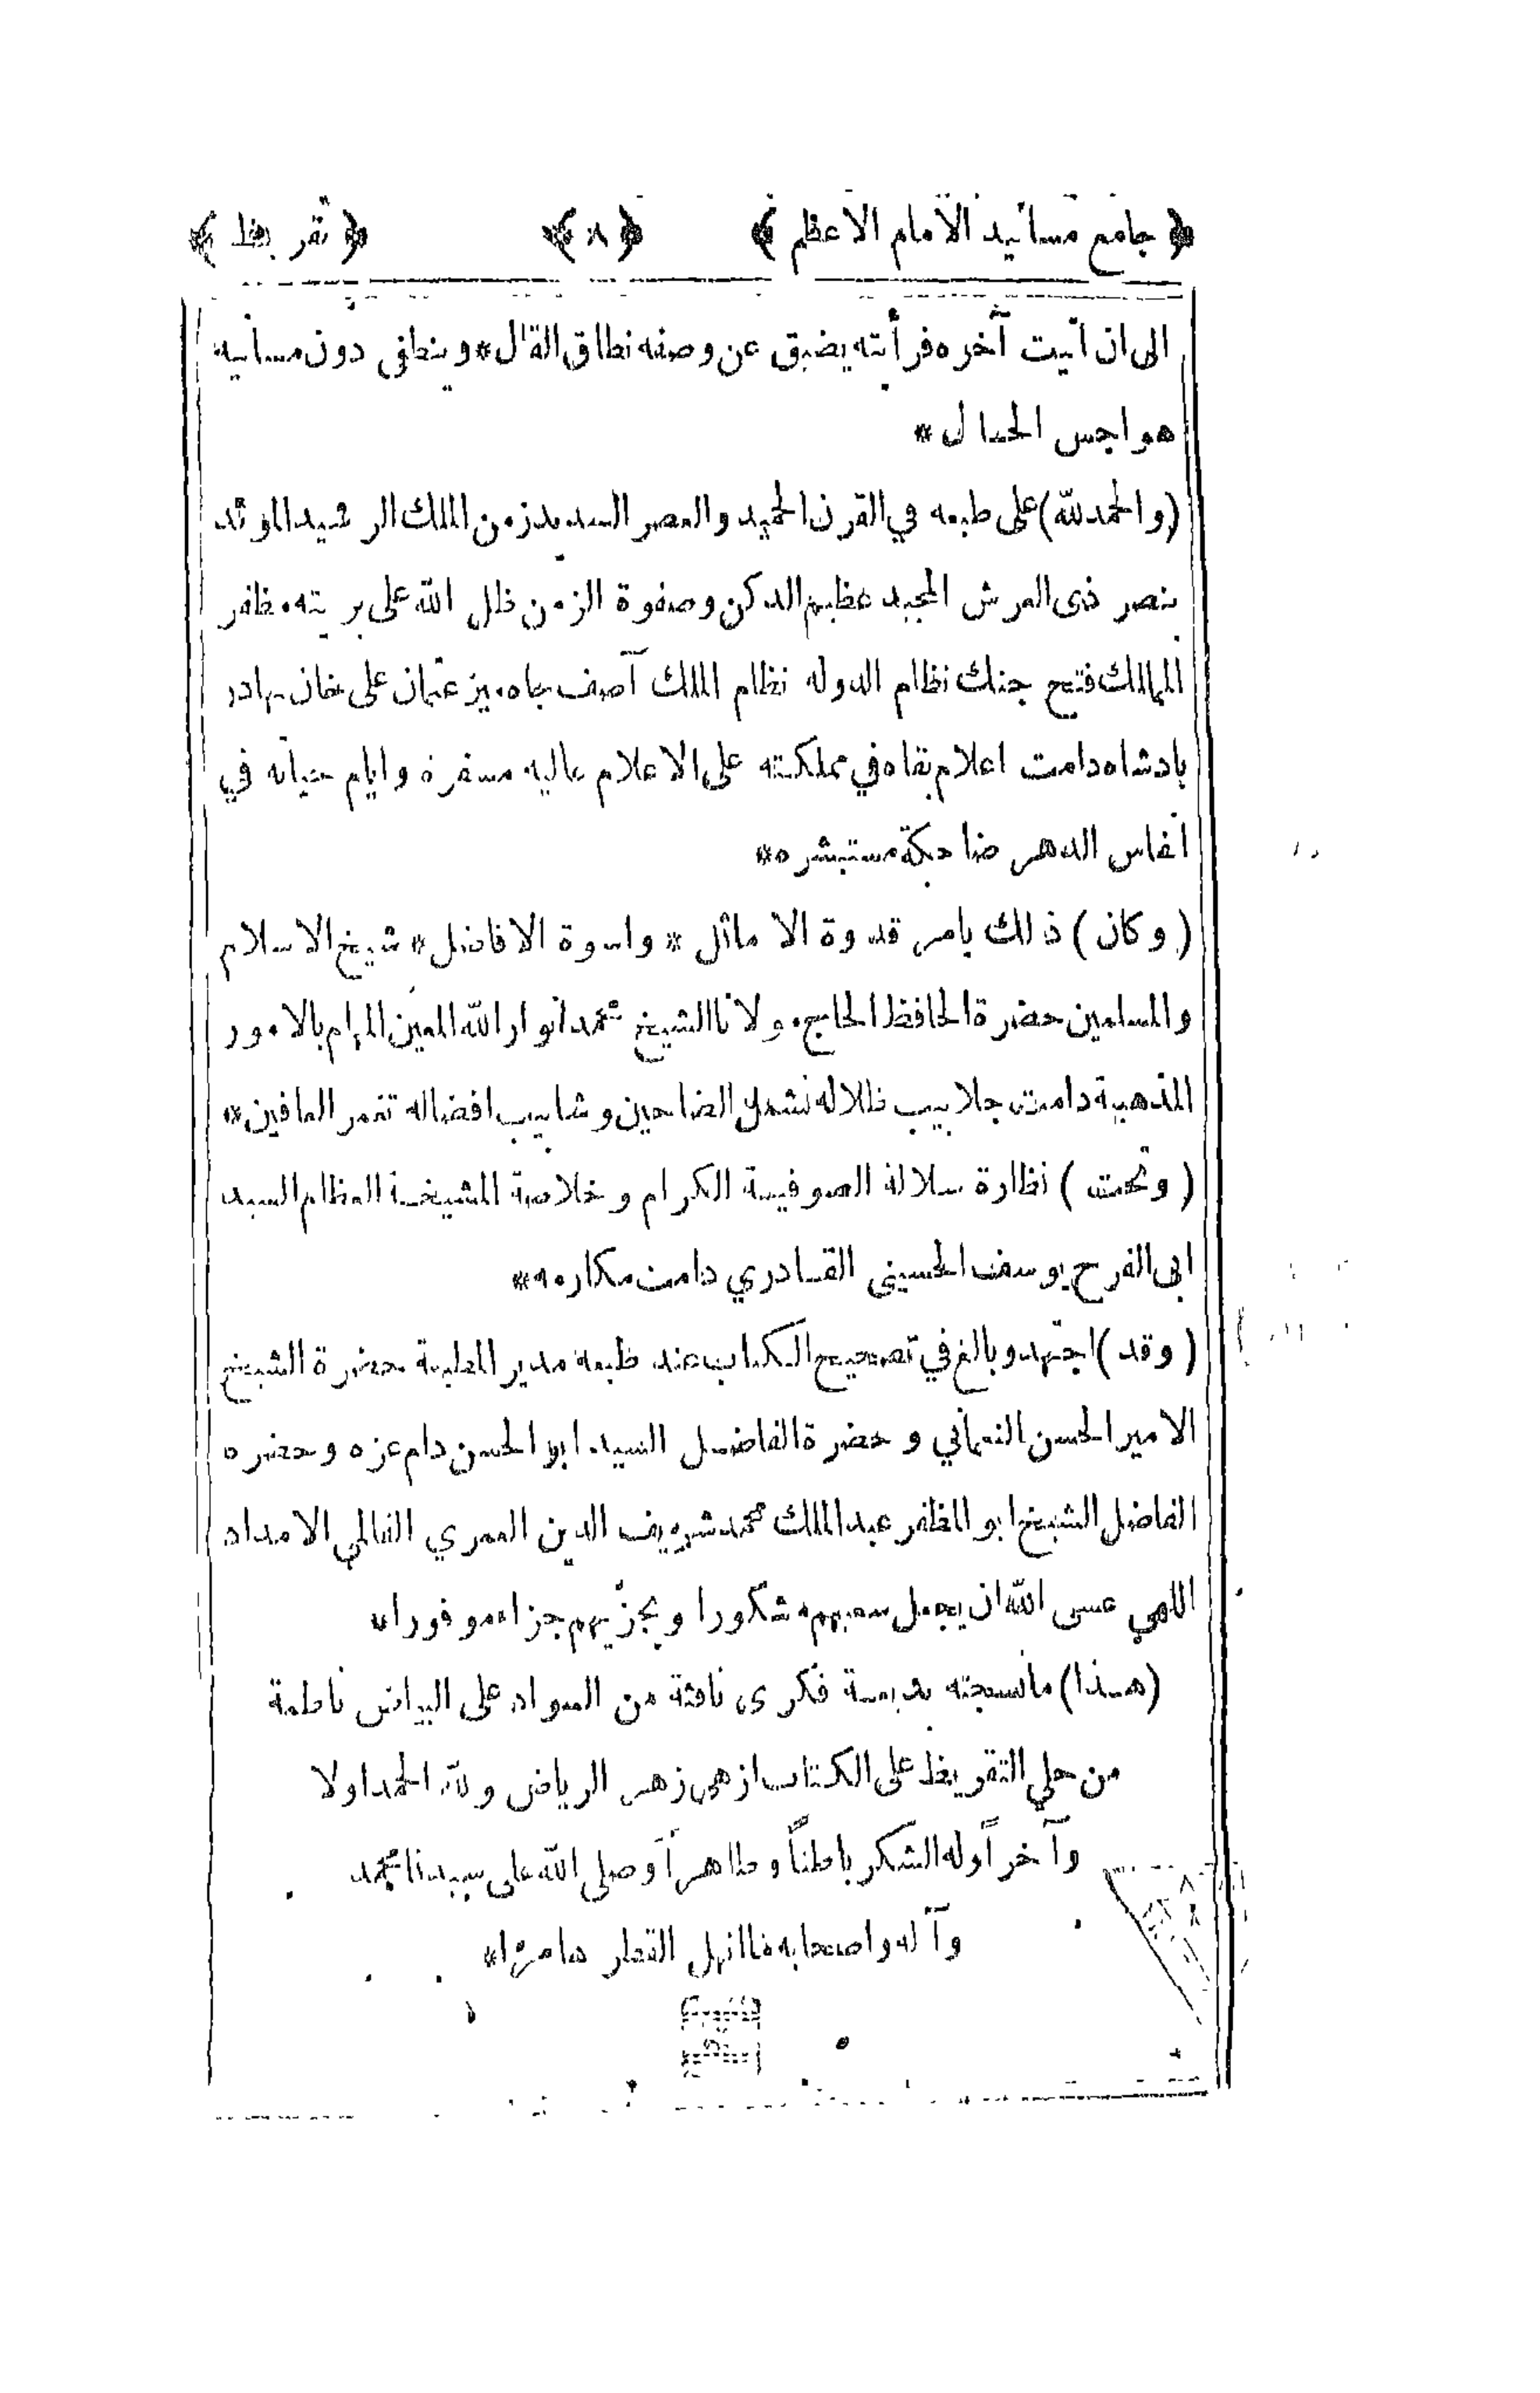 ﴿ جامع مسانيد الامام الاعظم ﴾ ﴿ ٨ ﴾ ﴿ تقريظ ﴾
الى ان اتيت آخره فرأيته يضيق عن وصفه نطاق القال * وينطفى دون مسانيه
هواجس الخيال *
(والحمد لله) على طبعه في القرن الحميد والعصر السديد زمن الملك الرشيد المؤئد
بنصر ذى العرش المجيد عظيم الدكن وصفوة الزمن ظل الله على بريته مظفر
الممالك فتح جنك نظام الدوله نظام الملك آصف جاه مير عثمان على خان بهادر
بادشاه دامت اعلام بقاه في مملكته على الاعلام عاليه مسفره وايام حياته في
انفاس الدهر ضاحكة مستبشره *
(وكان) ذلك بامر قدوة الاماثل * واسوة الافاضل * شيخ الاسلام
والمسلمين حضرة الحافظ الحاج مولانا الشيخ محمد انوار الله المعين المهام بالامور
المذهبية دامت جلابيب ظلاله تشمل الضاحين وشابيب افضاله تغمر العافين *
(وتحت) نظارة سلالة الصوفية الكرام وخلاصة المشيخة العظام السيد
ابى الفرح يوسف الحسينى القادري دامت مكارمه *
(وقد) اجتهد وبالغ في تصحيح الكتاب عند طبعه مدير المطبعة حضرة الشيخ
الامير الحسن النعماني وحضرة الفاضل السيد ابو الحسن دام عزه وحضره
الفاضل الشيخ ابو المظفر عبد الملك محمد شريف الدين العمري الفالمي الامداد
اللهي عسى الله ان يجعل سعيهم مشكورا ويجزيهم جزاء موفورا *
(هذا) ما نسجته بديهة فكرى نافثة من السواد على البياض ناظمة
من حلي التقريظ على الكتاب ازهى زهر الرياض ولله الحمد اولا
وآخراً وله الشكر باطناً وظاهراً وصلى الله على سيدنا محمد
وآله واصحابه ما انهل القطار هامرا *